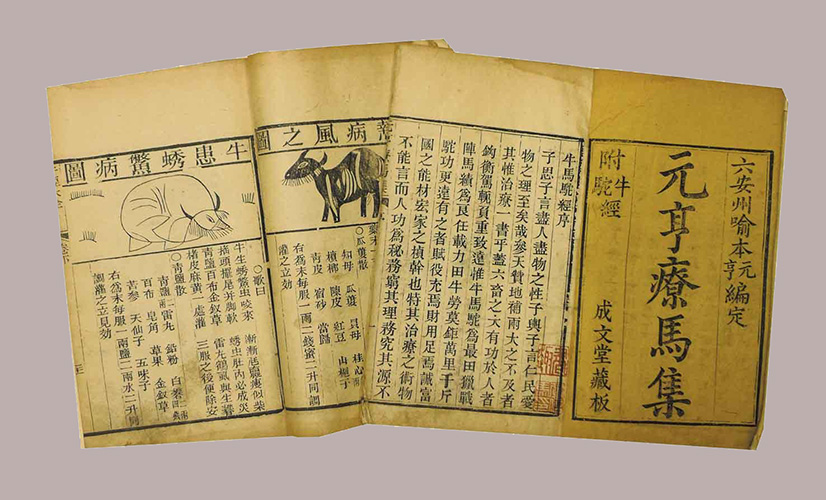 六安州喻本元亨編定
元亨療馬集
附牛駝經
成文堂藏板
牛馬駝經序
子思子言盡人盡物之性子輿子言仁民愛
物之理至矣哉參天贊地補兩大之不及者
其惟治療一書乎蓋六畜之大有功於人者
鈞衡駕駝負重致遠惟牛馬駝爲最田獵戰
陣馬績爲良任載力田牛勞莫鉅萬里千斤
駝功更遠有之者賦役充焉財用足焉誠富
國之能材安家之楨幹也特其治療之術物
不能言而人功爲秘務窮其理務究其源不
病風之圖
○瓜蔞散
知母 瓜蔞 貝母 桂心
檳榔 陳皮 紅豆 山梔子
青皮 宿砂 當歸
右爲末每服一兩二錢蜜二升同調
灌之立効
牛患蜏鱉病圖
○歌曰
牛生蜏鱉虫咬來 漸漸毛焦瘦似柴
擺頭擺尾并脚軟 蜏虫肚內必成災
青鹽百布金釵草 雷丸鶴虱與生薑
楮皮麻黃一處灌 三服之後便除安
青鹽散
青鹽 雷丸 鉛粉 白礬
百布 皂角 草果 金釵草
苦參 天仙子 五味子
右爲末每服一兩鹽二兩水二升同
調灌之立見効